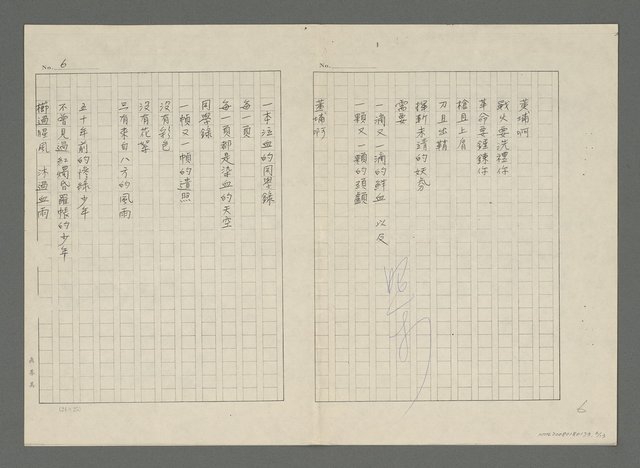 黃埔啊
戰火要洗禮你
革命要鍛鍊你
槍且上肩
刀且出鞘
掃斬未清的妖氛
需要
一滴又一滴的鮮血 以及
一顆又一顆的頭顱
黃埔啊
No. 6
一本泣血的同學錄
每一頁
每一頁都是染血的天空
同學錄
一幀又一幀的遺照
沒有彩色
沒有花架
只有來自八方的風雨
五十年前的慘綠少年
不曾見過紅燭昏羅帳的少年
櫛過腥風 沐過血雨
(24×25)
No.
6